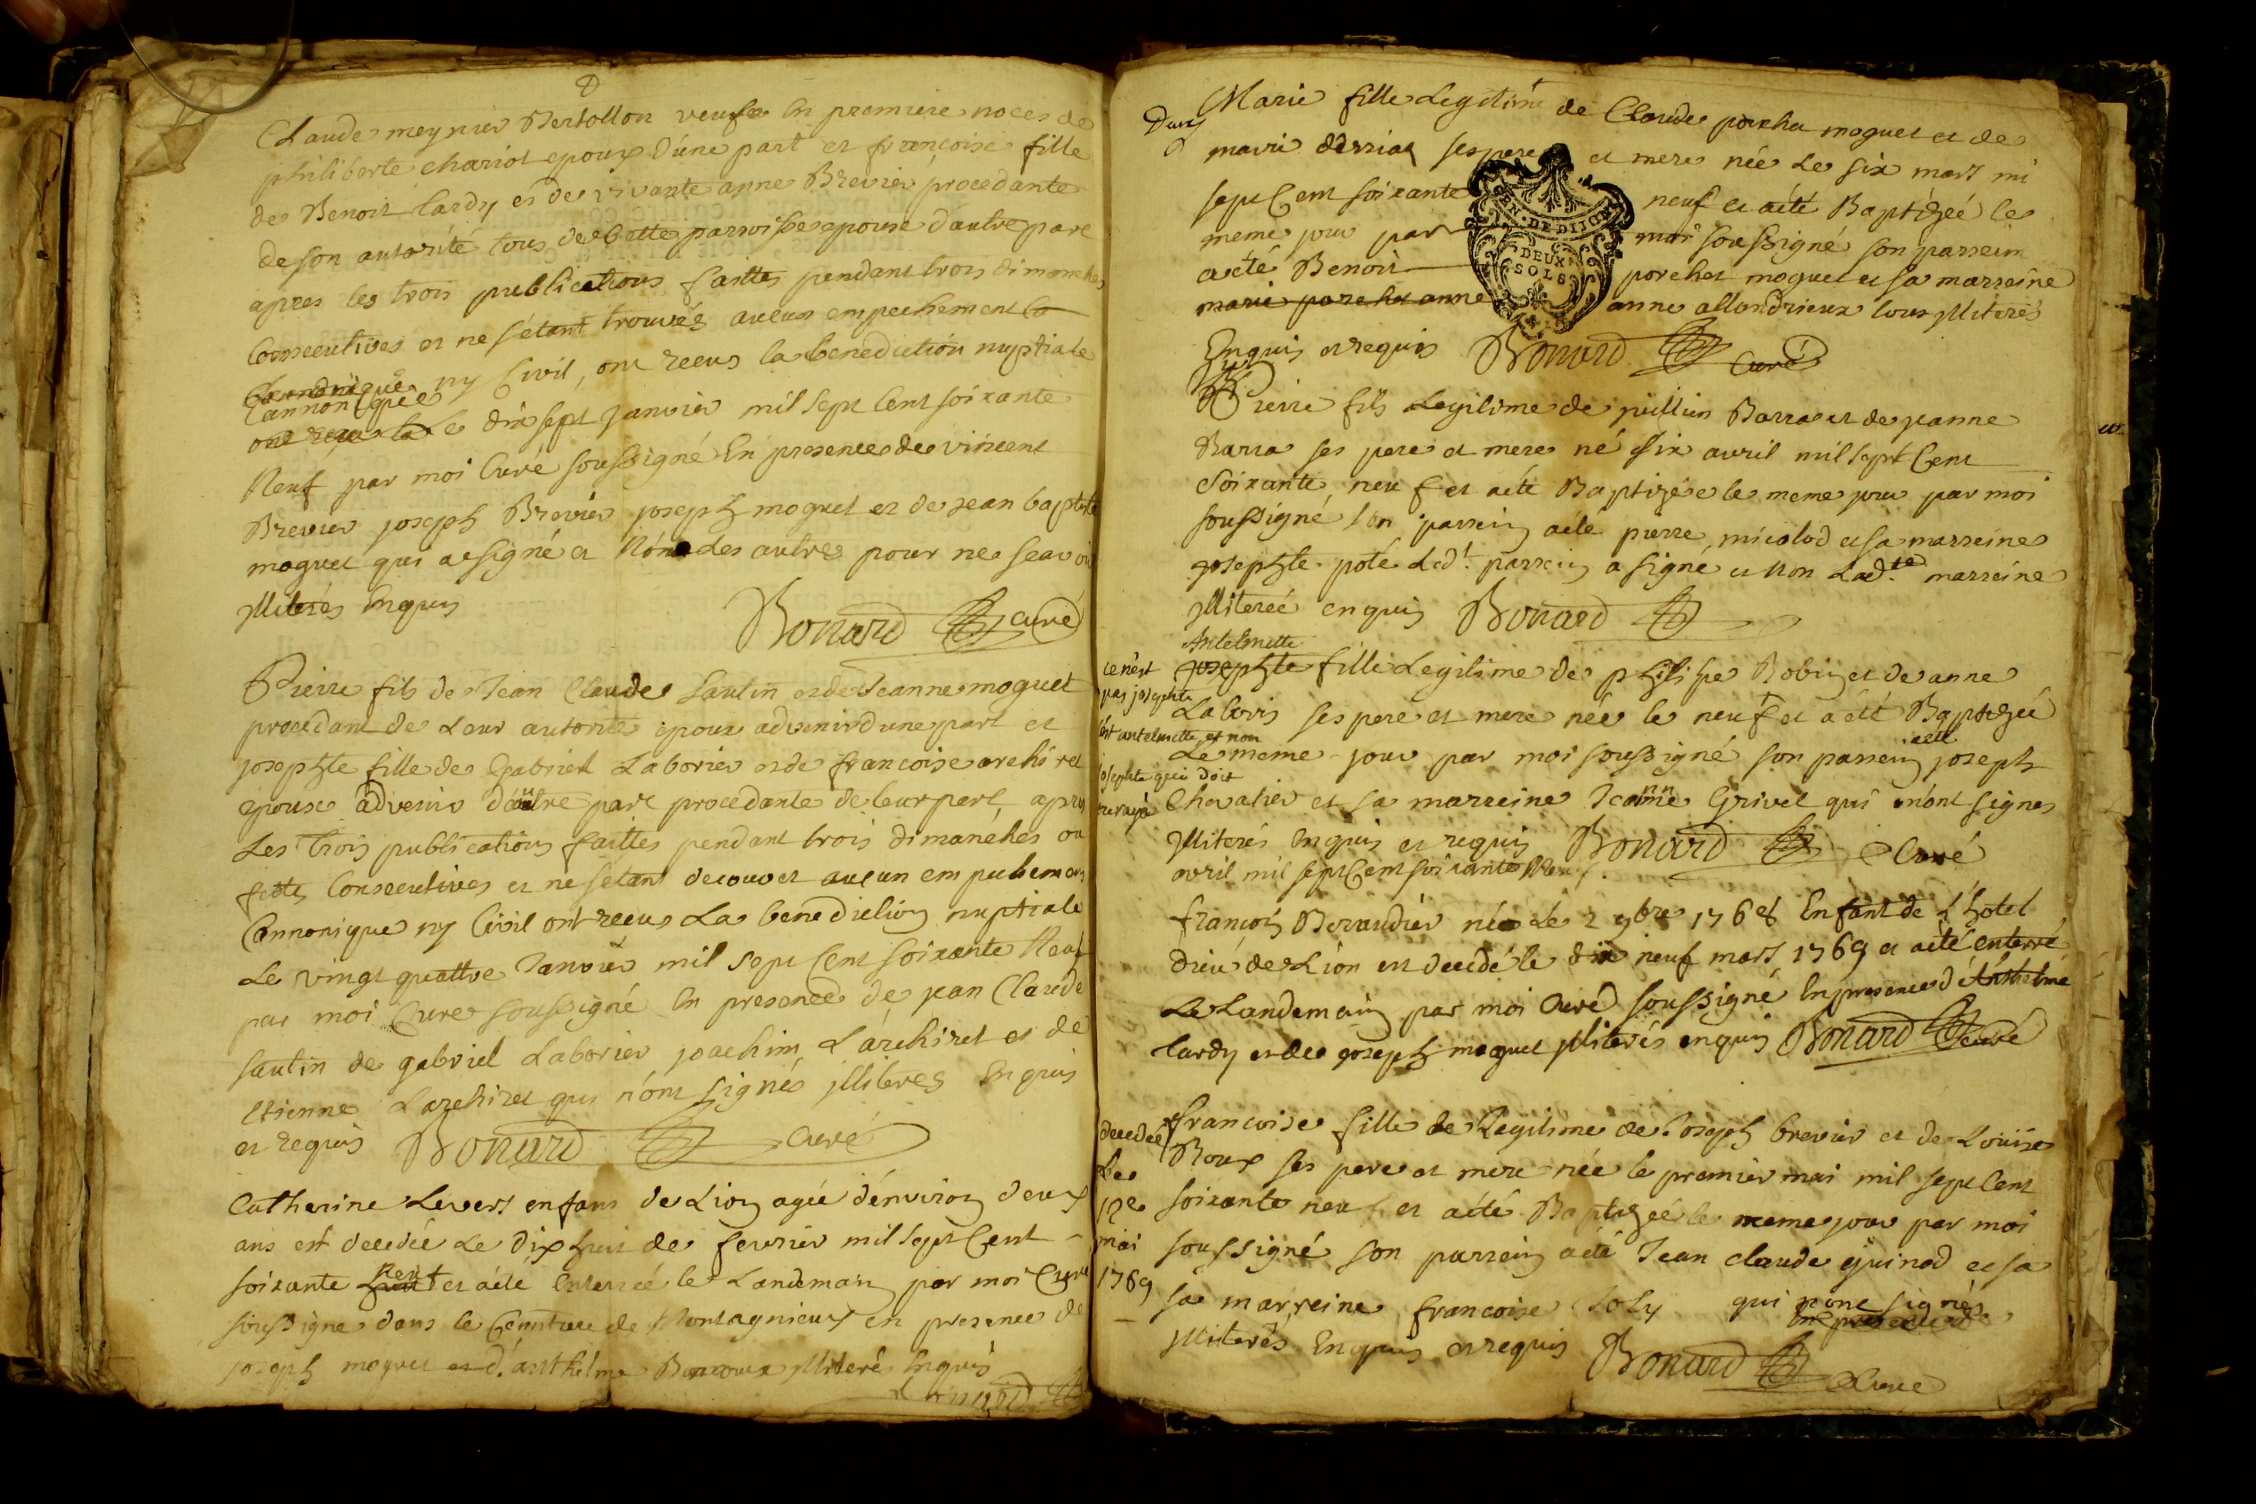 Claude meynier Bertollon veufs En premiere noces de
philiberte chariot epoux d'une part et françoise fille
de Benoit tardy et de vivante anne Brevier procedante
de son autorité tous de Cette parroisse epouse d'autre part
apres les trois publications faittes pendant trois dimanches
Consecutives et ne s'etant trouvés aucun empechement
Cannonique ny Civil, ont receus la benediction nuptiale
le dix sept janvier mil sept Cent soixante
Neuf par moi Curé soussigné En presence de vincent
Brevier joseph Brevier joseph moguet et de jean baptiste
moguet qui a signé et Non les autres pour ne scavoir
jlliterés Enquis
Bonard curé
Pierre fils de Jean Claude sautin et de Jeanne moguet
procedant de Leur autorité epoux advenir d'une part et
josephte fille de Gabriel Laborier et de francoise
epouse advenir d'autre part procedante de leur part, apres
Les trois publications faittes pendant trois dimanches ou
fettes Consecutives et ne s'etant decouvert aucun empechement
Cannonique ny Civil ont receus La benediction nuptiale
Le vingt quattre Janvier mil sept Cent soixante Neuf
par moi Curé soussigné En presence de jean Claude
sautin de gabriel Laborier joachim Larchiret et de
Etienne Larchiret qui n'ont signé jlliterés Enquis
et requis Bonard curé
Catherine Levert enfans de Lion agée d'environ deux
ans est decedée Le dix huit de fevrier mil sept Cent
soixante neuf et aété Enterrée le Landemain par moi Curé
soussigné dans le Cemitiere de Montagnieux en presence de
joseph moguet et d'anthelme jlliteré Enquis
Bonard
Marie fille Legitime de Claude porchet moguet et de
marie ses pere et mere née Le six mars mi
sept Cent soixante neuf et aété Baptizéé le
meme jour par moi soussigné son parrein
aeté Benoit porchet moguet et sa marreine
marie porchet anne anne allondrieux tous jlliterés
Enquis et requis Bonard Curé
GEN · DE DIJON
DEUX
SOLS
Pierre fils Legitime de jullien Barra et de jeanne
Barra ses pere et mere né six avril mil sept Cent
Soixante neuf et aété Baptizée le meme jour par moi
soussigné son parrein aété pierre micolod et sa marreine
josephte poté Led.t parrein a signé et Non Lad.te marreine
jlliterée enquis Bonard
Antelmette
ce n'est
pas josephte
c'est antelmette et non
josephte qui doit
josephte fille Legitime de philipe Robin et de anne
Laboris ses pere et mere née le neuf et aété Baptizée
Le meme jour par moi soussigné son parrein aété joseph
Chevalier et sa marreine Jeanne Grivel qui n'ont signes
jlliterés Enquis et requis Bonard Curé
avril mil sept Cent soixante Neuf.
françois Beraudier né Le 2 9bre 1768 Enfant de L'hotel
dieu de Lion est decedé le dix neuf mars 1769 et aété enterré
Le Landemain par moi Curé soussigné En presence d'Anthelme
tardy et de joseph moguet jlliterés enquis Bonard Curé
decedée
Le
12e
mai
1769
francoise fille de Legitime de Joseph brevier et de Louise
Roux ses pere et mere née le premier mai mil sept Cent
soixante neuf et aété Baptizéé le meme jour par moi
soussigné son parrein aété Jean claude quinod et sa
sa marreine francoise Joly qui n'ont signés
En presence de
jlliterés Enquis et requis Bonard Curé